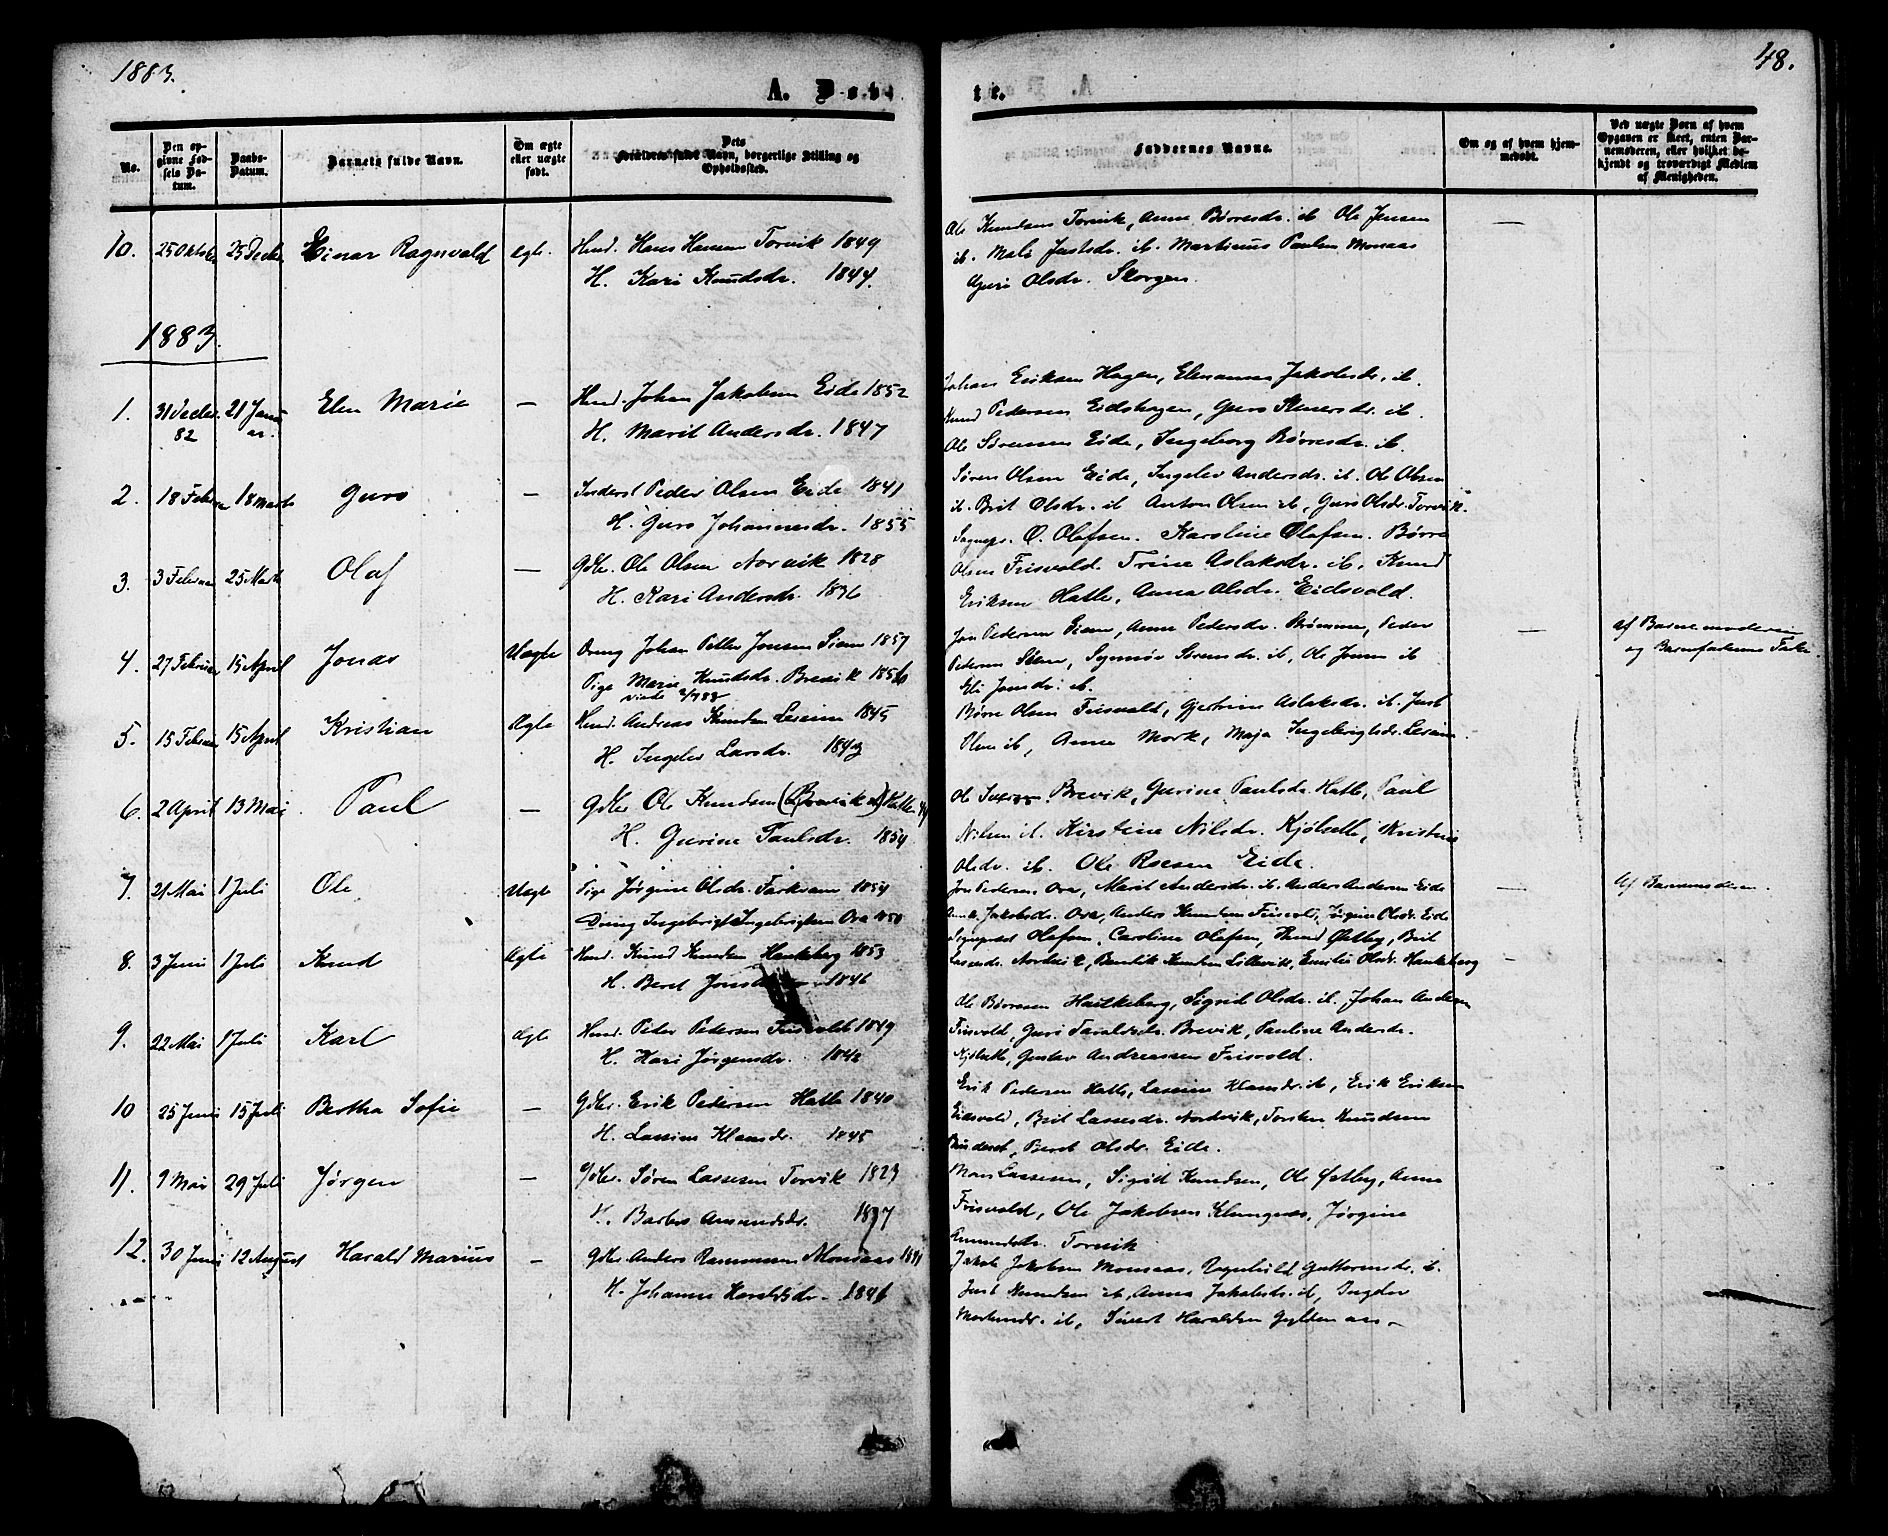 1883.
48.
A. Døbte.
No.
Den opgivne Fødsels Datum.
Daabs-Datum.
Barnets fulde Navn.
Om ægte eller uægte født.
Dets Forældres fulde Navn, borgerlige Stilling og Opholdssted.
Faddernes Navne.
Om og af hvem hjemmedøbt.
Ved uægte Børn af hvem Opgaven er skeet, enten Barnemoderen, eller hvilket bekjendt og troværdigt Medlem af Menigheden.
10. 25 Oktober 25 Decbr Einar Ragnvald ægte. Huusmd. Hans Hansen Torvik 1849
H. Kari Knudsdr. 1844.
Ole Knudsen Torvik, Anne Børresdr. ib. Ole Jensen
ib. Mali Justsdr. ib. Martinus Paulsen Monsaas
Guri Olsdr. Skorgen.
—
1883.
1. 31 Decbr. 82 21 Januar. Elen Marie — Huusmd. Johan Jakobsen Eide 1852
H. Marit Andersdr. 1847
Johan Eriksen Hagen, Elenanna Jakobsdr. ib.
Knud Pedersen Eidshagen, Guro ib.
Ole Sørensen Eide, Ingeborg Børresdr. ib.
2. 18 Februar 18 Marts Guro — Inderst Peder Olsen Eide 1841
H. Guro Johannesdr. 1855
Søren Olsen Eide, Ingelev Andersdr. ib. Ole Olsen
ib. Brit Olsdr. ib Anton Olsen ib, Guro Olsdr. Torvik.
3. 3 Februar 25 Marts Olaf — Gdbr. Ole Olsen Norvik 1828
H. Kari Andersdr. 1836
Sognepr. O. Olafsen. Karoline Olafsen. Børre
Olsen Frisvold. Trine Aslaksdr. ib. Knud
Eriksen Hatle, Anna Olsdr. Eidsvold.
4. 27 Februar 15 April Jonas Uægte Dreng Johan Petter Jonsen Siem 1857
Pige Marie Knudsdr. Brevik 1856
viede 2/7 83
Jon Pedersen Siem, Anne Pedersdr. Strømmen, Peder
Pedersen Siem, Synnøv Sørensdr. ib, Ole Jonsen ib
Eli Jonsdr. ib.
—
af Barnemoderen
og Barnefaderens Fader
5. 15 Februar 15 April Kristian Ægte Huusmd. Andreas Knudsen Leseim 1845
H. Ingelev Larsdr. 1843
Børre Olsen Frisvold, Gjertrine Aslaksdr. ib. Just
Olsen ib, Anne Mork, Maja Ingebrigtsdr. Leseim.
6. 2 April 13 Mai Paul — Gdbr Ole Knudsen (Brevik) Hatle
H. Gurine Paulsdr. 1854
Ole Brevik, Gurine Paulsdr. Hatle, Paul
Nilsen ib. Kirstine Nilsdr. Kjølseth, Kristine
Olsdr. ib. Ole Roesen Eide.
7. 21 Mai 1 Juli Ole Uægte Pige Jørgine Olsdr. Farkvam 1854
Dreng Ingebrigt Ingebrigtsen Ora 1850
Jon Pedersen Ora, Marit Andersdr. ib. Anders Andersen Eide
Anne Jakobsdr. Ora, Anders Knudsen Frisvold, Jørgine Olsdr. Eide
—
Af Barnemoderen.
8. 3 Juni 1 Juli Knud Ægte Huusmd. Knud Knudsen Haukeberg 1853
H. Beret 1846
Sognepræst Olafsen, Caroline Olafsen, Knud Østbøg, Brit
Lassesdr. Nordvik, Bendik Knudsen Lillevik, Emilie Olsdr. Haukeberg
—
9. 22 Mai 1 Juli Karl Ægte Huusmd. Peder Pedersen Frisvold 1849
H. Kari Jørgensdr. 1842
Ole Børresen Haukeberg, Sigrid Olsdr. ib. Johan Andersen
Frisvold, Guri Taraldsdr. Brevik, Pauline Andersdr.
Kjølseth, Gustav Andreassen Frisvold.
10 25 Juni 15 Juli Bertha Sofie — Gdbr. Erik Pedersen Hatle 1840
H. Lassine Klausdr. 1845
Erik Pedersen Hatle, Lassine Klausdr. ib, Erik Eriksen
Eidsvold, Brit Lassesdr. Nordvik, Torsten Knudsen
Beret Olsdr. Eide.
11. 9 Mai 29 Juli Jørgen — Gdbr. Søren Lassesen Torvik 1823
H. Barbro Amundsdr. 1837
Mons Lassesen, Sigrid Knudsen, Ole Østbøg, Anne
Frisvold, Ole Jakobsen Klungnæs, Jørgine
Amundsdr. Torvik
12. 30 Juni 12 August Harald Marius — Gdbr Anders Rasmussen Monsaas
H. Johanne Haraldsdr. 1841
Jakob Jakobsen Monsaas, Ragnhild Guttormsdr. ib.
Just Knudsen ib, Anna Jakobsdr. ib, Ingelev
ib, Sivert Haraldsen Gyldenaas.